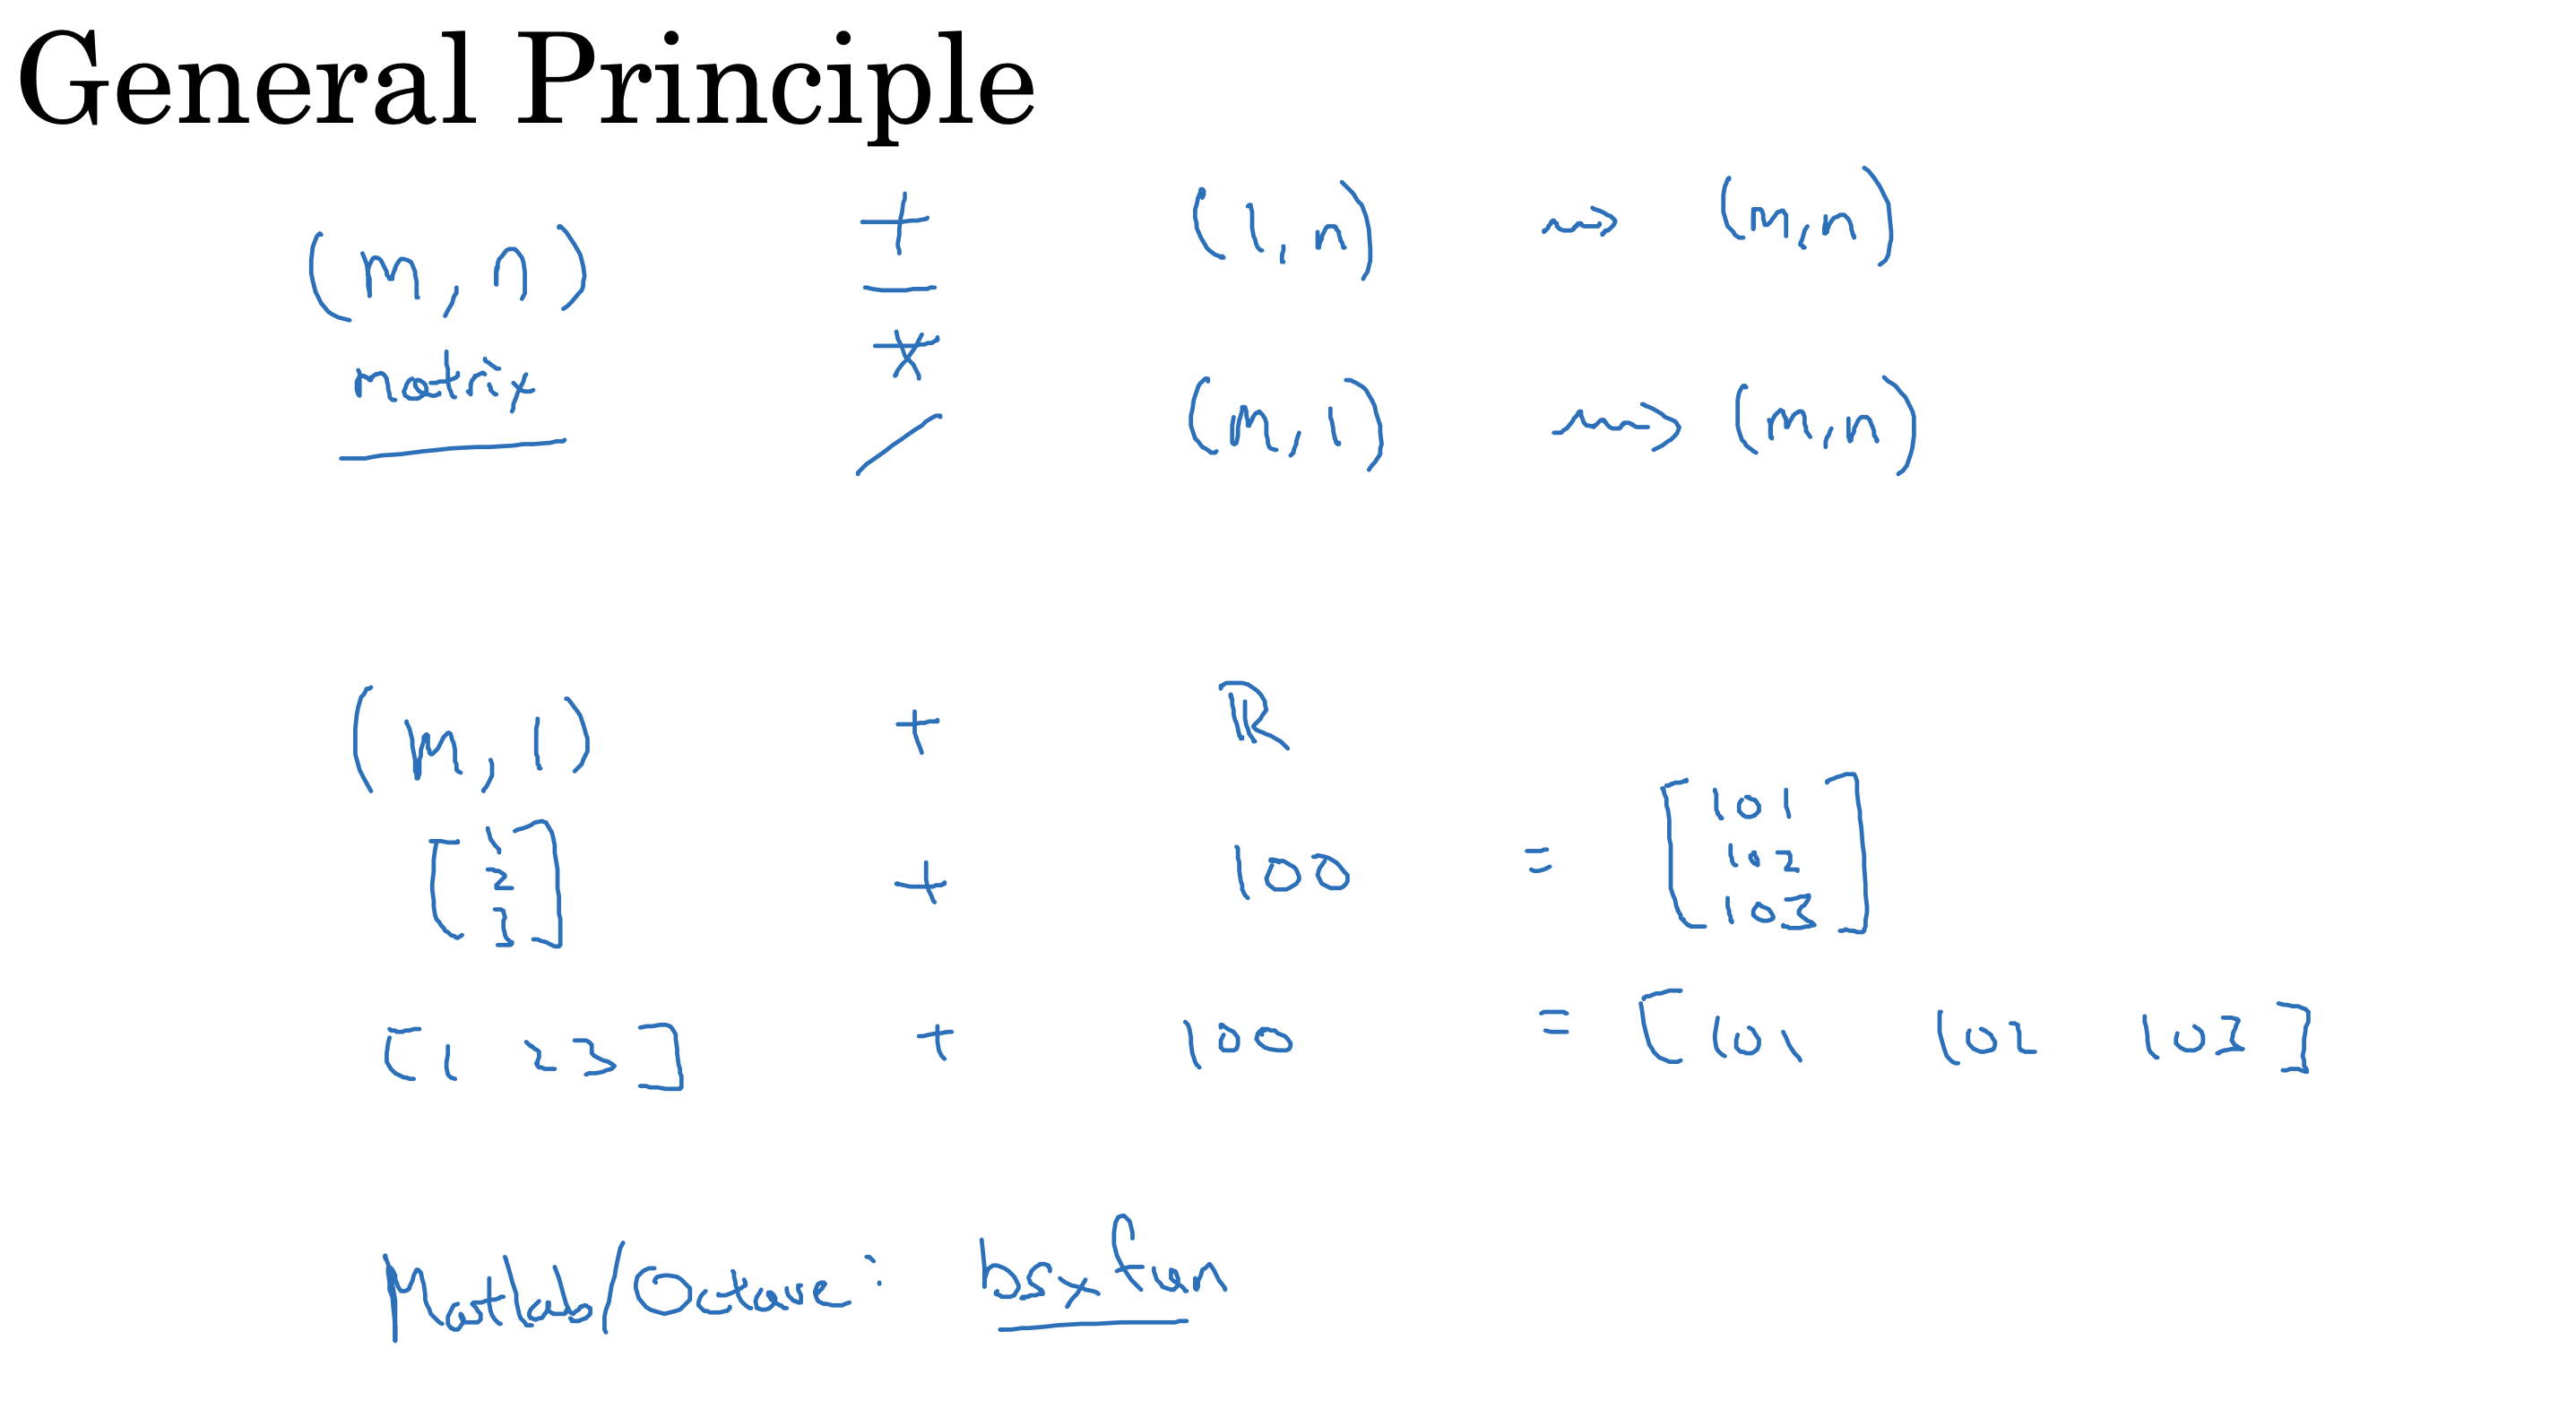 General Principle
(m, n) + (1, n) ⇝ (m, n)
matrix − 
*
/ (m, 1) ⇝ (m, n)
(m, 1) + ℝ
[1 2 3] + 100 = [101 102 103]
[1 2 3] + 100 = [101 102 103]
Matlab/Octave: bsxfun